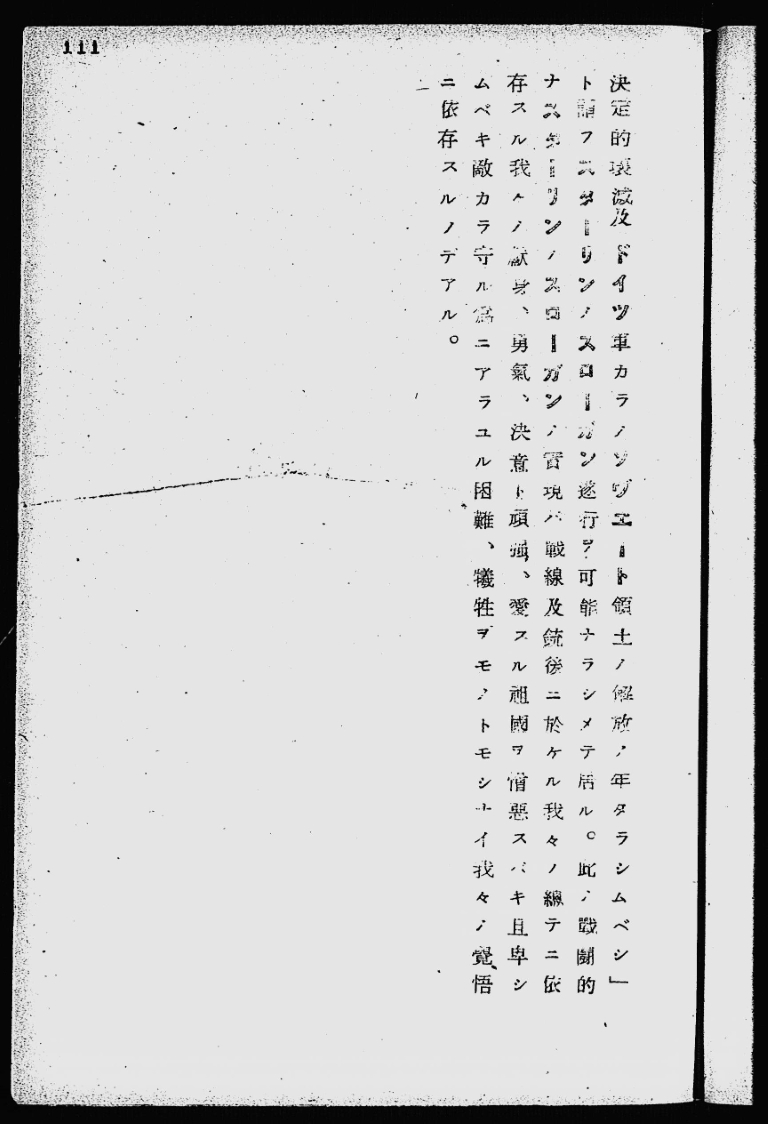 111
決定的壊滅及ドイツ軍カラノソヴエート領土ノ解放ノ年タラシムベシ」
ト謂フスターリンノスローガン遂行ヲ可能ナラシメテ居ル。此ノ戰鬪的
ナスターリンノスローガンノ實現ハ戰線及銃後ニ於ケル我々ノ總テニ依
存スル我々ノ獻身、勇氣、決意ト頑强、愛スル祖國ヲ憎惡スベキ且卑シ
ムベキ敵カラ守ル爲ニアラユル困難、犧牲ヲモノトモシナイ我々ノ覺悟
ニ依存スルノデアル。